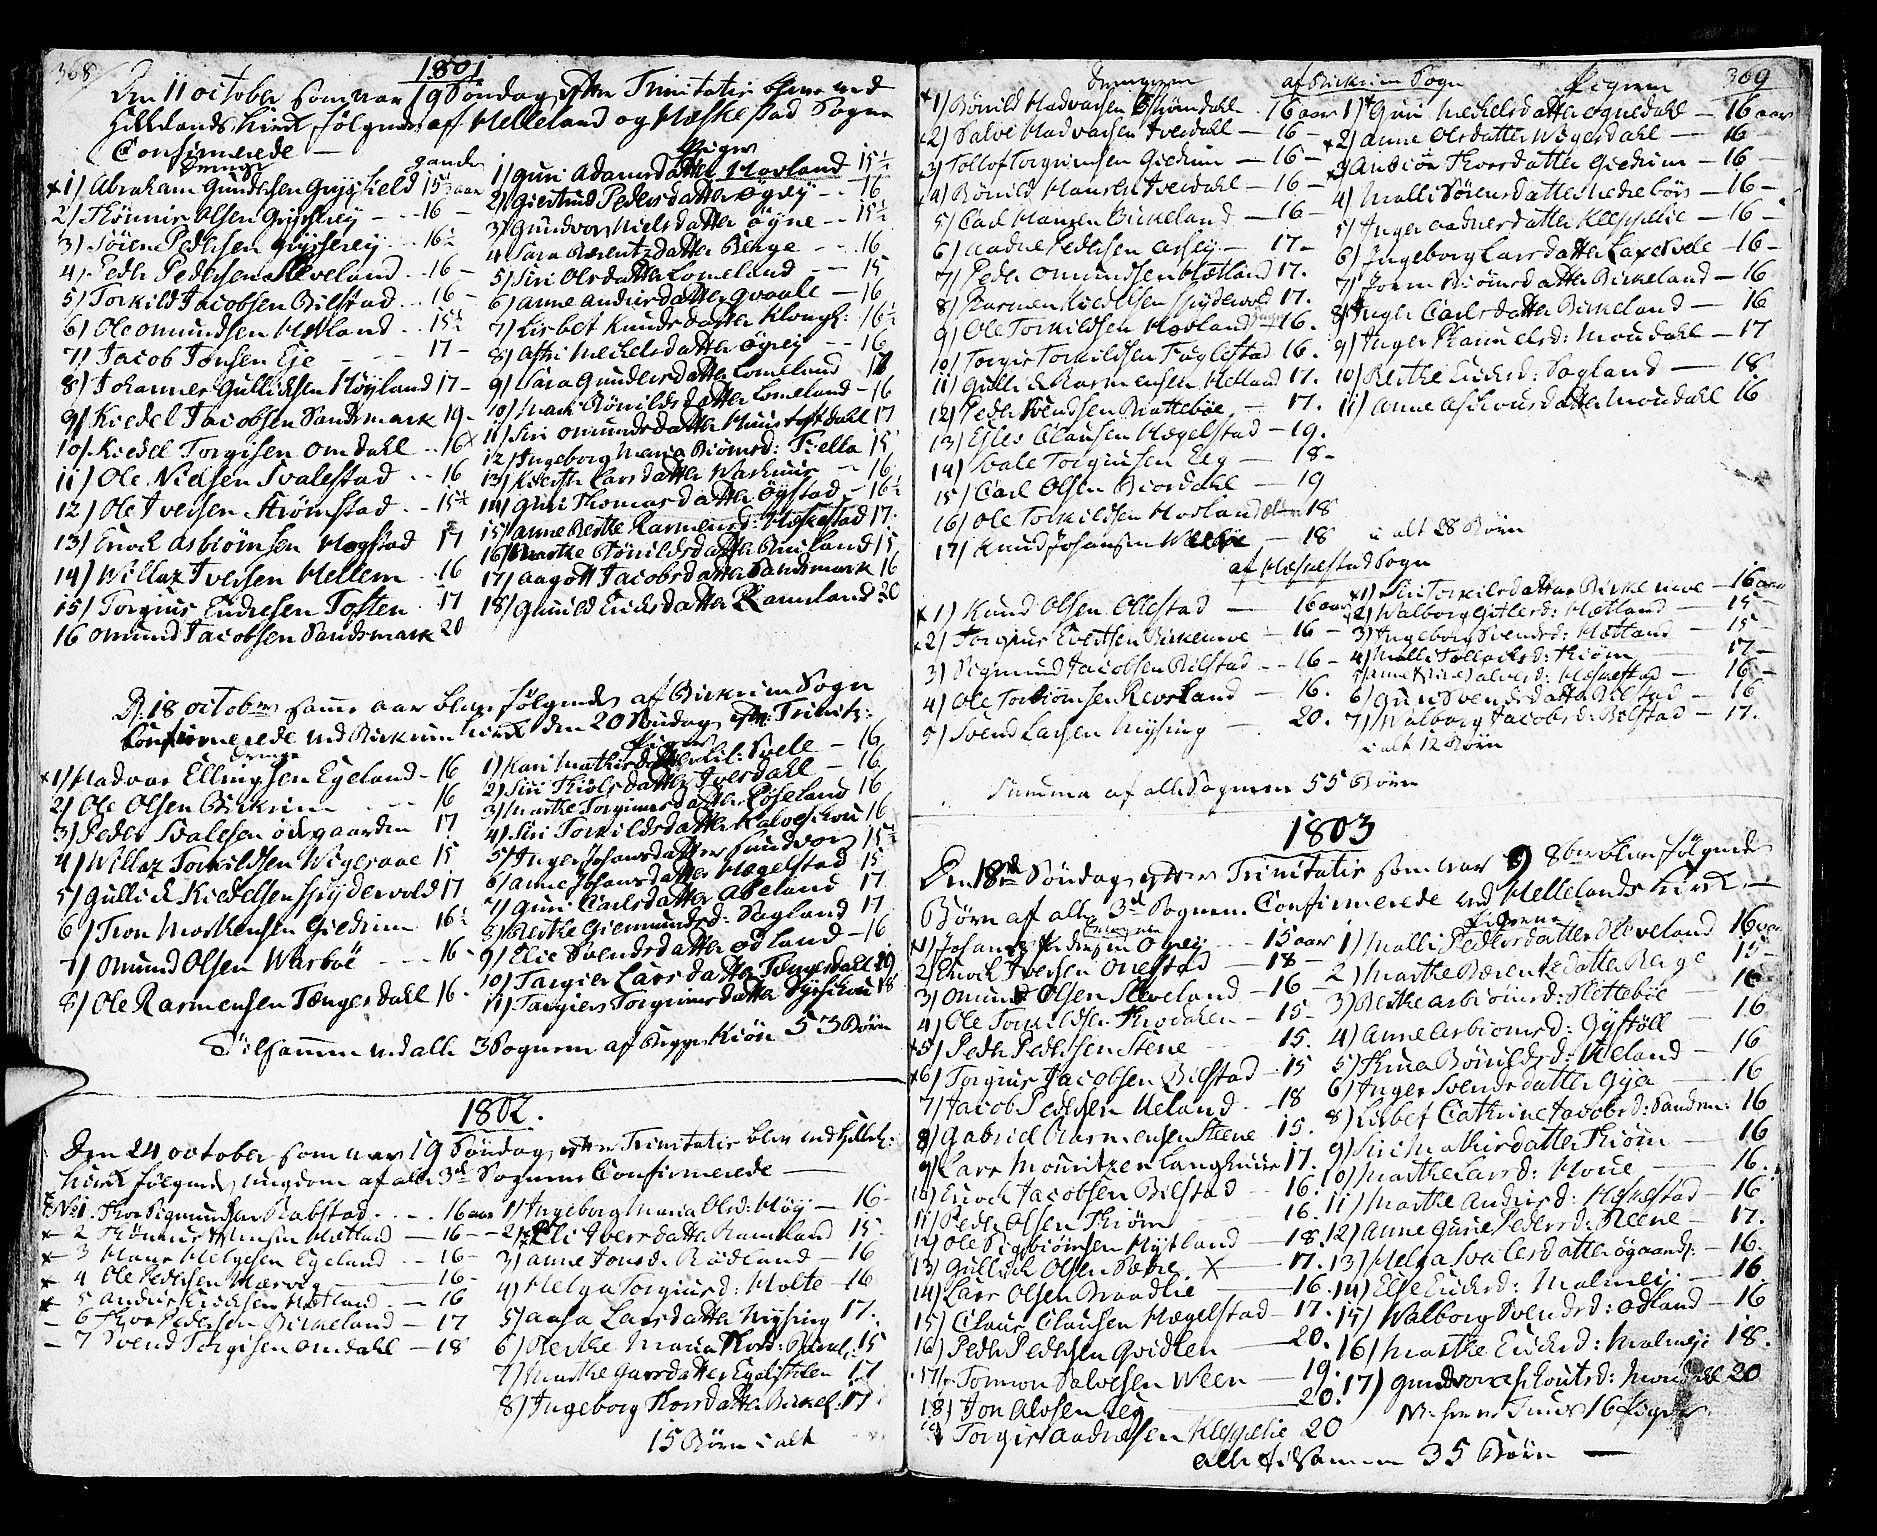 368
1801
Den 11 october som var 19 Søndag efter Trinitatis bleve ved
Hellelands Kirke følgende af Helleland og Hæskestad Sogne
Confirmerede
Drenge
1) Abraham Gundersen 15½ aar
2) Thønnis Olsen 16
3) Søren Pedersen 16½
4) Peder Pedersen Sleveland 16
5) Torkild Jacobsen Bilstad 16
6) Ole Omundsen Hovland 15½
7) Jacob Tønsen Eje 17
8) Johannes Gullichsen Høyland 17
9) Kiedel Jacobsen Sandsmark 19
10) Kiedel Torgisen Omdahl 16
11) Ole Nielsen Svalestad 16
12) Ole Iversen Strømstad 15½
13) Enoch Asbiørnsen Hogstad 17
14) Willaz Iversen Hellem 16
15) Torgius Endresen Tosten 17
16 Omund Jacobsen Sandsmark 20
Piger
1) Guri Adamsdatter Hovland 15½
2) Giertrud Pedersdatter Øgrey 16
3) Gundvor Nielsdatter Øyne 15½
4 Sara Berentzdatter Berge 16
5) Siri Olsdatter Lomeland 15
6) Anne Andersdatter Qvaale 16
7) Lisbet Knudsdatter 16½
8) Astri Mickelsdatter Øgrey 16
9) Sara Gundersdatter Lomeland
10) Mari Bønildsdatter Lomeland 16
11) Siri Omundsdatter 17
12) Ingeborg Maria Biørnsd: Fiella 15
13) Kirsti Larsdatter 16
14) Guri Thomasdatter Øgstad 16½
15) Anne Berthe Rasmusd: Hæskestad 17
16) Marthe Tønildsdatter 15
17) Aagott Jacobsdatter Sandsmark 16
18) Gunild Ericksdatter Ramsland 20
D. 18 october samme aar bleve følgende af Birkrim Sogn
Confirmerede ved Birkrim Kirke den 20 Søndag efter Trinit:
Drenge
1) Hadvar Ellingsen Egeland 16
2) Ole Olsen Birkrim 16
3) Peder Svalesen Ødegaarden 17
4) Willaz Torkildsen Wigesaae 15
5) Gullick Kiedelsen Spydevold 17
6) Tron Morthensen Giedrim 16½
7) Omund Olsen Warbøe 16
8) Ole Rasmussen Tængesdahl 16
Piger
1) Kari Mathisdatter lil: Svele 16
2) Siri Thiølsdatter Iversdahl 16
3) Marthe Torgiusdatter Røseland 16
4) Siri Torkildsdatter 16
5) Inger Johansdatter Sundvor 15½
6) Anne Johansdatter Hægelstad 15
7) Guri Carlsdatter Aaseland 17
8) Berthe Giermundsd: Sagland 17
9) Elie Svendsdatter Ødland 16
10) Targier Larsdatter Tængesdahl 19
11) Targiers Torgiusdatter 18
Tilsammen ved alle 3 Sognene af begge Kiøn 53 Børn
1802.
Den 24 october som var 19 Søndag efter Trinitatis blev ved Hellel:
Kirke følgende ungdom af alle 3de Sognene Confirmerede
No 1. Thor Sigmundsen Rabstad 16 aar
2 Thønnes Hansen Hetland 16
3 Hans Helgesen Egeland 16
4 Ole Pedersen Mærvig 16
5 Anders Ericksen Hetland 16
6 Thor Pedersen Birkeland 17
7 Svend Torgisen Omdahl 18
1) Ingeborg Maria Olsd: Høy 16
2) Eli Iversdatter Ramsland 15
3) Anne Jonsd. Rødland 16
4) Helga Torgiusd: Holte 16
5) Aasa Larsdatter Nysing 17
6) Berthe Maria Thord: 15
7) Marthe Garsdatter Egelstilen 17
8) Ingeborg Thorsdatter Birkel: 17
15 Børn i alt
369
Drengene af Birkrim Sogn Pigerne
1) Bønild Hadvarsen 16 aar
2) Salve Hadvarsen Iversdahl 16
3) Tollof Torgrimsen Giedrim 16
4) Bønild Hansen Iversdahl 16
5) Carl Hansen Birkeland 16
6) Aadne Pedersen 17
7) Peder Omundsen Hetland 17.
8) Rasmus Kiedelsen Spydevold 17.
9) Ole Torkildsen Hovland 16.
10) Torgis Torkildsen Fuglestad 16.
11) Gullick Rasmusen Hetland 17.
12) Peder Svendsen Brattebøe 17.
13) Giles Clausen Hægelstad 19.
14) Svale Torgiusen Eeg 18
15) Carl Olsen Biordahl 19
16) Ole Torkildsen Hovland 18
17) Knud Johansen 18
1) Guri Mickelsdatter Øgnedahl 16 aar
2) Anne Olsdatter Wigesdahl 16
3) Anbiør Thorsdatter Giedrim 16
4) Malli Sørensdatter Nedrebøe 16
5) Inger Aadnesdatter Kleppelie 16
6) Ingeborg Larsdatter Laxesvele 16
7) Joren Biørnsdatter Birkeland 16
8) Inger Carlsdatter Birkeland 16
9) Inger Samuelsd: Moudahl 17
10) Berthe Ericksd: Sagland 18.
11) Anne Aslousdatter Moudahl 16
i alt 28 Børn
af Hæskestad Sogn
1) Knud Olsen Ollestad 16 aar
2) Torgius Evertsen Birkemoe 16
3) Sigmund Jacobsen Bilstad 16
4) Ole Torbiørnsen Revsland 16.
5) Svend Larsen Nysing 20.
1) Siri Torkilsdatter Birkemoe 16 aar
2) Walborg Gitlesd: Hetland 15
3) Ingeborg Svendsd: Hetland 15
4) Malli Tollachsd: Skiørn 17
5) Anne Salvesd: Hæskestad 16
6) Guri Svendsdatter Bilstad 16
7) Walborg Jacobsd: Bilstad 17.
i alt 12 Børn
Summa af alle Sognene 55 Børn
1803
Den 18de Søndag efter Trinitatis som var 9 8ber bleve følgende
Børn af alle 3de Sognene Confirmerede ved Hellelands Kirke
Drengene
1) Johannes Pedersen Øgrey 15 aar
2) Enoch Iversen Ollestad 18
3) Omund Olsen Sleveland 16
4) Ole Torkildsen 15
5) Peder Pedersen Stene 15.
6) Torgius Jacobsen Bilstad 15
7) Jacob Pedersen Ueland 18
8) Gabriel Rasmusen Steene 15.
9) Lars Mouritzen Langhuus 17.
10) Enoch Jacobsen Bilstad 16.
11) Peder Olsen Skiørn 16.
12) Ole Sigbiørnsen Nytland 18.
13) Gullick Olsen Sæbøe X 17.
14) Lars Olsen Brandlie 16.
15) Claus Clausen Hægelstad 17.
16) Peder Pedersen Qvidlen 20.
17) Tormon Salvesen Ween 19.
18) Jon Alvsen Eeg 20.
19) Torgis Aadnesen Kleppelie 20
Pigerne
1) Malli Pedersdatter Sleveland 16 aar
2) Marthe Berentzdatter Berge 15
3) Berthe Asbiørnsd: Slettebøe 16
4) Anne Asbiørnsd: Gystøll 16
5) Thrina Bønildsd: Ueland 16
6) Inger Svendsdatter Gya 16
8) Lisbet Cathrine Jacobsd: Sandsm: 16
9) Siri Mathisdatter Skiørn 16
10) Marthe Larsd: Hove 16.
11) Marthe Andersd: Hæskestad 16
12) Anne Gurie Pedersd: Steene 17.
13) Helga Svalesdatter Øgaards: 16.
14) Else Ericksd: Malmeij 16.
15) Walborg Svendsd: Ødland 16
16) Marthe Ericksd: Malmeje 18.
17) Gundvor Asloutsd: Moudahl 20
16 Piger.
alle tilsammen 35 Børn